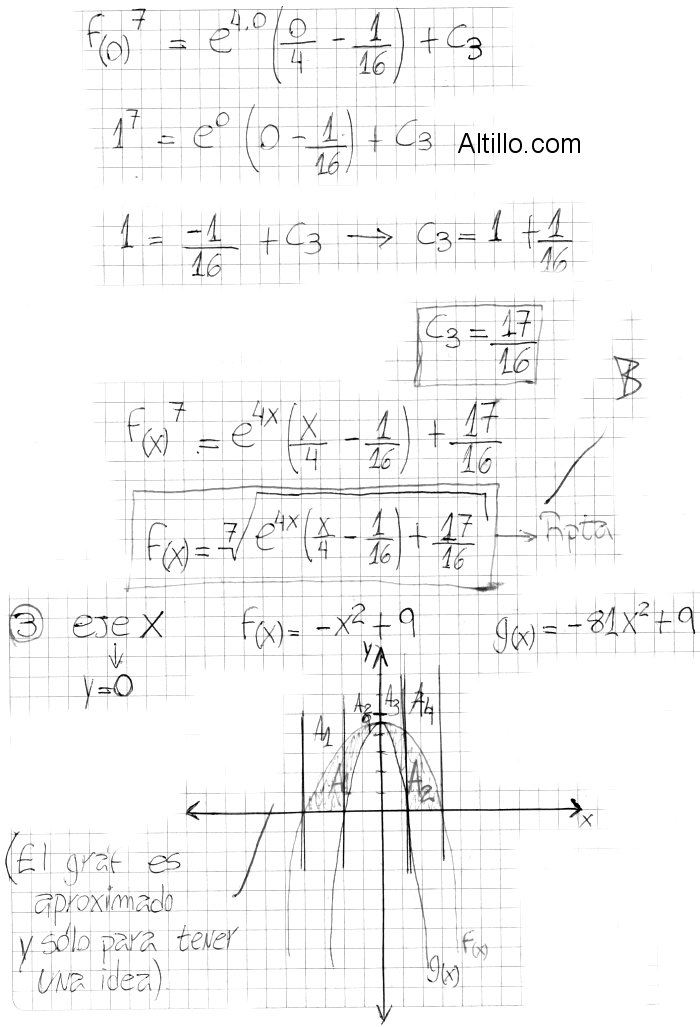 f(0)^7 = e^4.0 (0/4 - 1/16) + C3
1^7 = e^0 (0 - 1/16) + C3 Altillo.com
1 = -1/16 + C3 → C3 = 1 + 1/16
C3 = 17/16
B
f(x)^7 = e^4x (x/4 - 1/16) + 17/16
f(x) = 7√ e^4x (x/4 - 1/16) + 17/16 → Rpta
③ eje X f(x) = -x^2 + 9 g(x) = -81x^2 + 9
↓
y=0
y
A1 A2 A3 A4
A A2
x
(El graf es
aproximado
y sólo para tener
una idea)
f(x)
g(x)